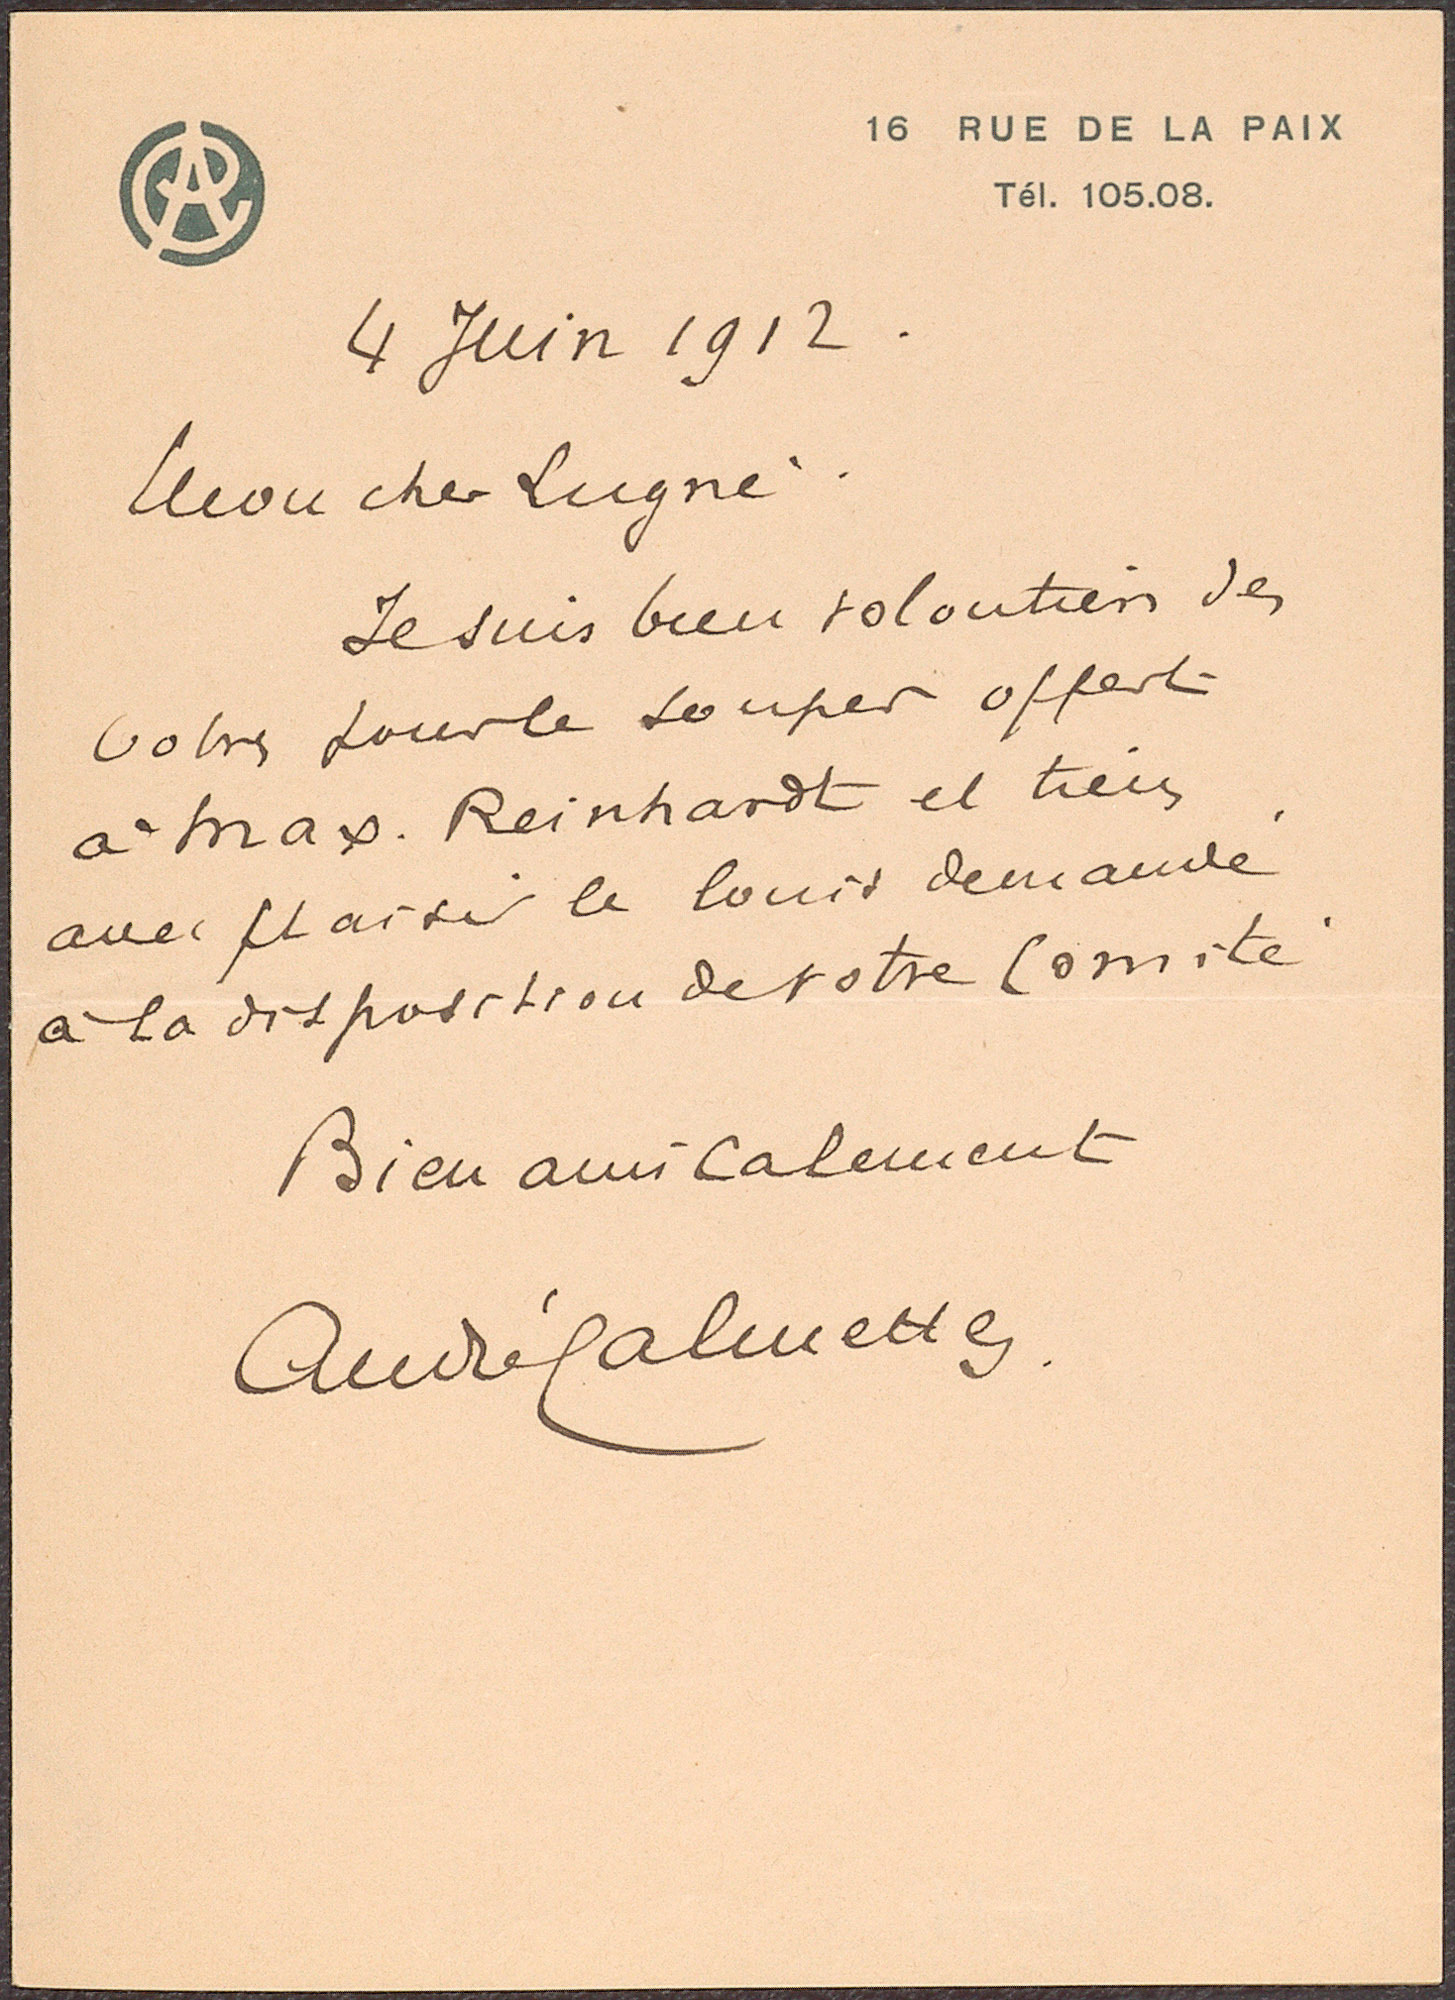 16 RUE DE LA PAIX
Tél. 105.08.
4 Juin 1912.
Mon cher Lugné.
Je suis bien volontiers des
votres pour le souper offert
à Max. Reinhardt et tiens
avec plaisir le louis demandé
à la disposition de votre Comité
Bien amicalement
André Calmettes.